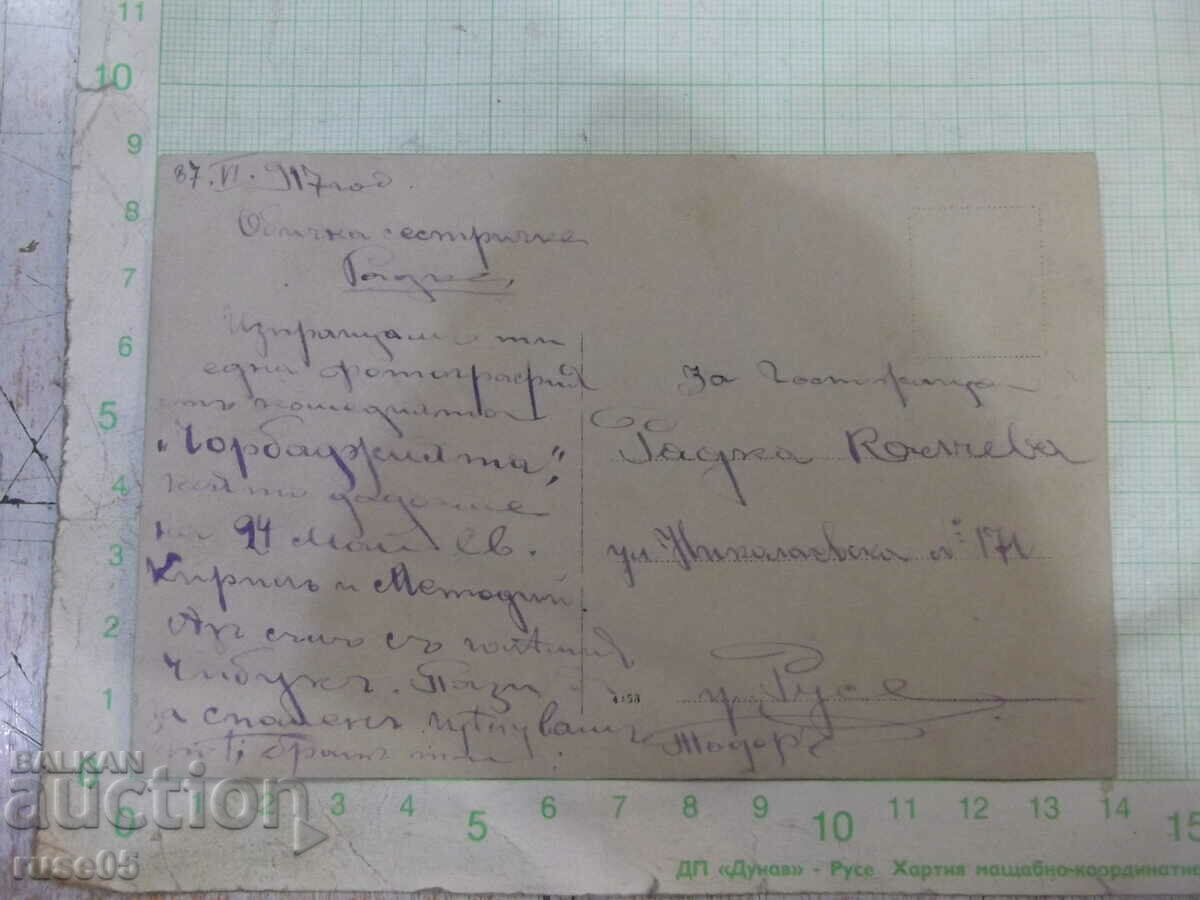 37.VI.917 год.
Обична сестричке
Радке,
Изпращамъ ти
една фотография
отъ комедията
„Чорбаджията",
която дадохме
на 24 май Св.
Кирилъ и Методий.
Азъ съмъ съ големия
Чибукъ. Пази
за споменъ. Цѣлувамъ
те, братъ ти:
Тодоръ
За Госпожица
Радка Колчева
ул. Николаевска № 171
гр. Русе
4153
11
10
9
8
7
6
5
4
3
2
1
0
0 1 2 3 4 5 6 7 8 9 10 11 12 13 14 15
ДП «Дунав» - Русе Хартия мащабно-координатна
BALKAN
auction
ruse05